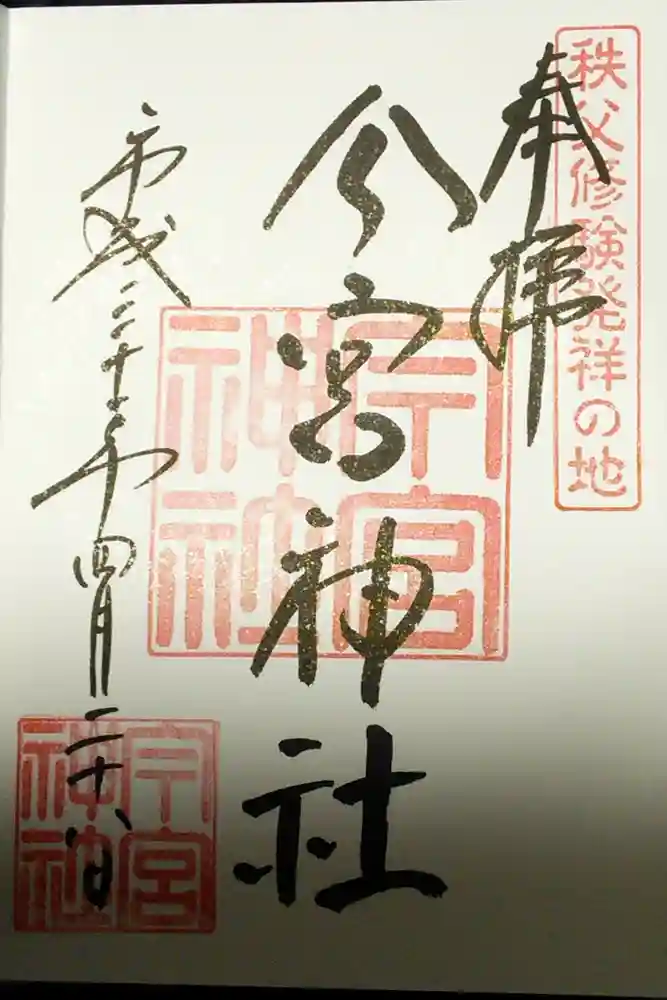 秩父修験発祥の地
奉拝
今宮神社
今宮神社
平成 十 年四月二十八日
今宮神社